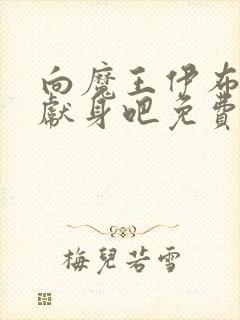 向魔王伊布
獻身吧免費
梅兒若雪